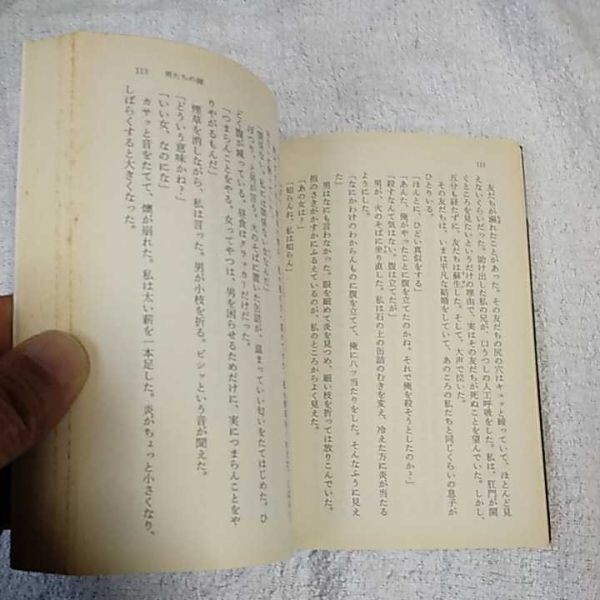 111
友だちが溺れたことがあった。その友だちの尻の穴はキュッと締っていて、ほとんど見
えないくらいだった。助け出した私の兄が、口うつしの人工呼吸をした。私は、肛門が開
くところを見たいというだけの理由で、実はその友だちが死ぬことを望んでいた。しかし、
五分も経たずに、友だちは蘇生した。そして、大声で泣いた。
その友だちは、いまは平凡な結婚をしていて、あのころの私たちと同じくらいの息子が
ひとりいる。
「ほんとに、ひどい真似をする」
「あんた、俺がやったことに腹を立てたのかね。それで俺を殺そうとしたのか?」
「殺すなんて気はない。腹は立てたが」
男が、火のそばに坐り直した。私は石の上の缶詰のむきを変え、冷えた方に炎が当たる
ようにした。
「なにかわけのわからんものに腹を立てて、俺に八ツ当たりをした。そんなふうに見え
男はなにも言わなかった。眼を細めて炎を見つめ、細い枝を折っては放りこんでいた。
指のさきがかすかにふるえているのが、私のところからよく見えた。
「あの女は?」
「知らんね、私は知らん」
113 男たちの
どく腹が減っている。昼食はクラッカーだけだった。
「つまらんことをやる。女ってやつは、男を困らせるためだけに、実につまらんことをや
りやがるもんだ」
煙草を消しながら、私は言った。男が小枝を折る。ピシッという音が聞えた。
「どういう意味かね?」
「いい女、なのにな」
カサッと音をたてて、燠が崩れた。私は太い薪を一本足した。炎がちょっと小さくなり、
しばらくすると大きくなった。